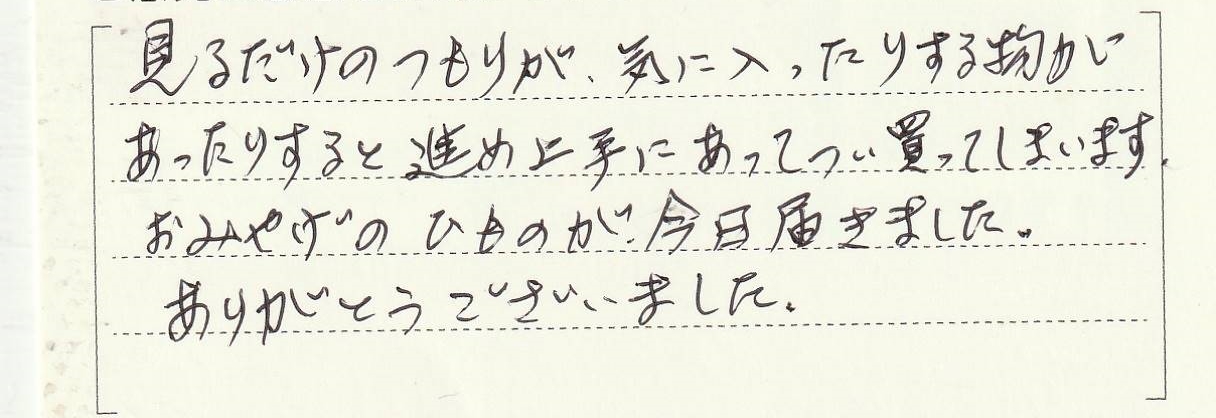 見るだけのつもりが、気に入ったりする物が
あったりすると進め上手にあってつい買ってしまいます。
おみやげのひものが、今日届きました。
ありがとうございました。